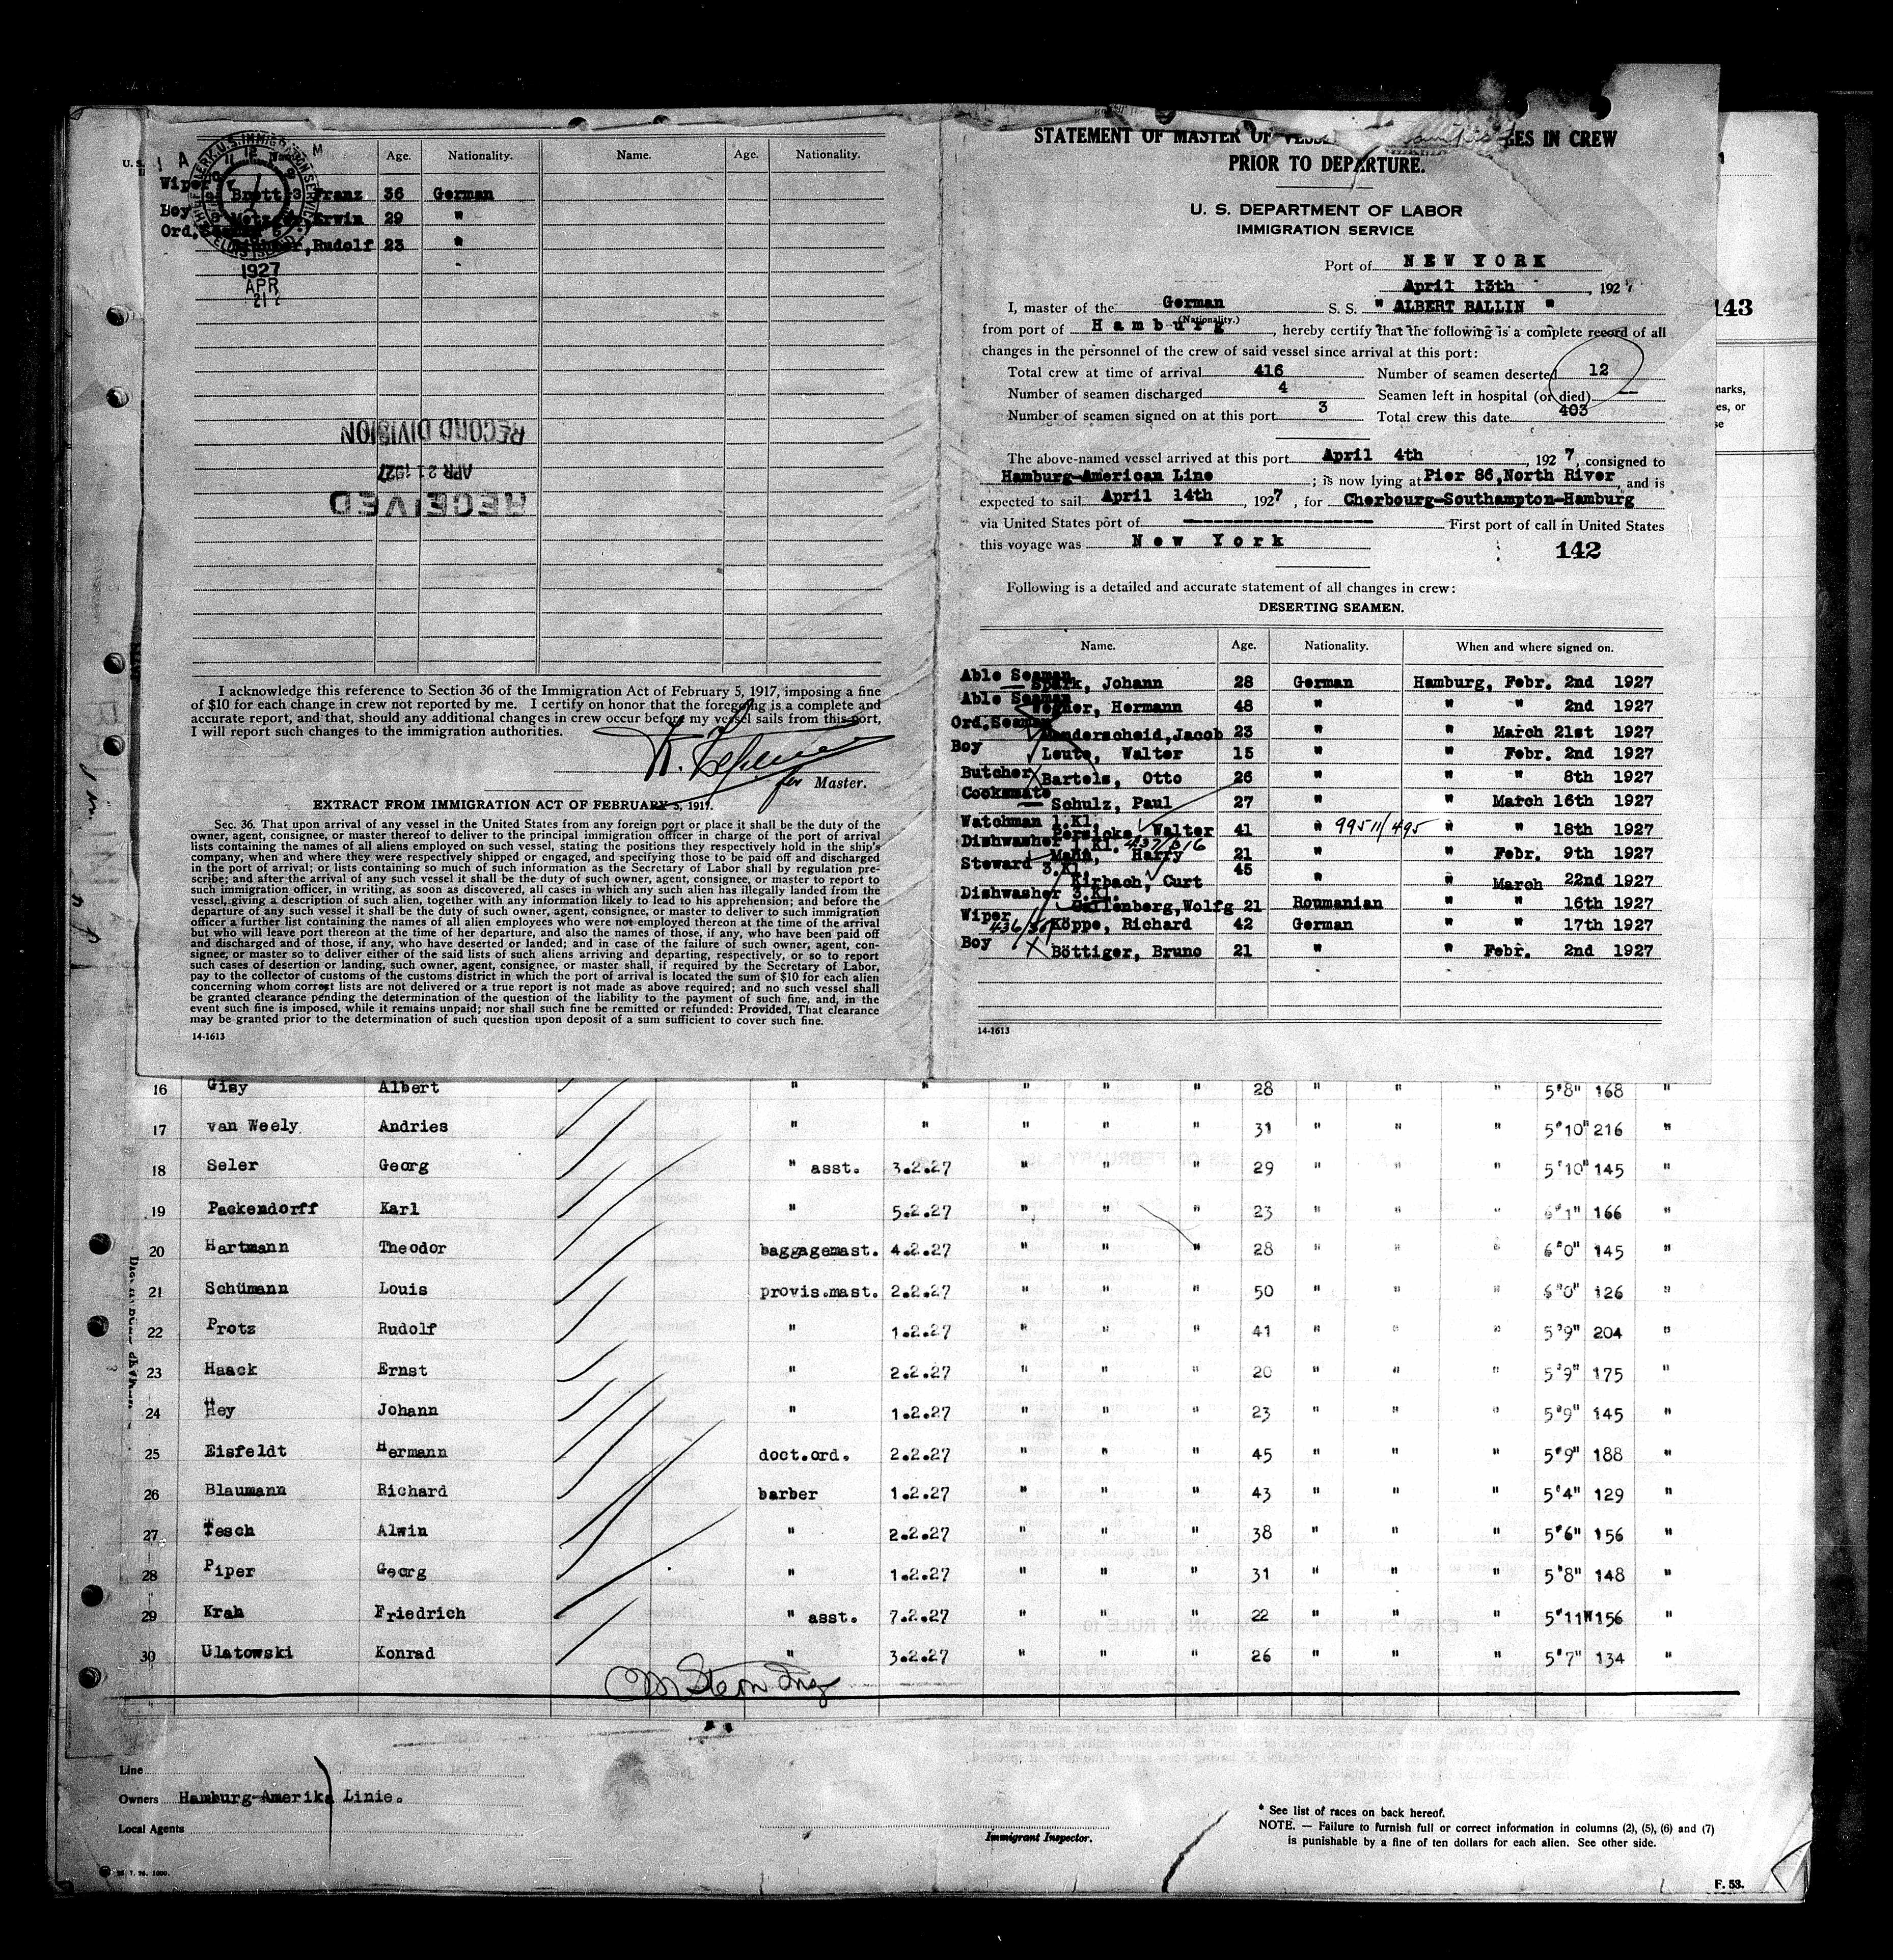 Age. Nationality. Name. Age. Nationality.
Wiper Brett Franz 36 German
Boy Erwin 29 "
Ord. Rudolf 23 "
1927
APR
21
RECORD DIVISION
APR 21 1927
RECEIVED
I acknowledge this reference to Section 36 of the Immigration Act of February 5, 1917, imposing a fine
of $10 for each change in crew not reported by me. I certify on honor that the foregoing is a complete and
accurate report, and that, should any additional changes in crew occur before my vessel sails from this port,
I will report such changes to the immigration authorities.
for Master.
EXTRACT FROM IMMIGRATION ACT OF FEBRUARY 5, 1917.
Sec. 36. That upon arrival of any vessel in the United States from any foreign port or place it shall be the duty of the
owner, agent, consignee, or master thereof to deliver to the principal immigration officer in charge of the port of arrival
lists containing the names of all aliens employed on such vessel, stating the positions they respectively hold in the ship's
company, when and where they were respectively shipped or engaged, and specifying those to be paid off and discharged
in the port of arrival; or lists containing so much of such information as the Secretary of Labor shall by regulation pre-
scribe; and after the arrival of any such vessel it shall be the duty of such owner, agent, consignee, or master to report to
such immigration officer, in writing, as soon as discovered, all cases in which any such alien has illegally landed from the
vessel, giving a description of such alien, together with any information likely to lead to his apprehension; and before the
departure of any such vessel it shall be the duty of such owner, agent, consignee, or master to deliver to such immigration
officer a further list containing the names of all alien employees who were not employed thereon at the time of the arrival
but who will leave port thereon at the time of her departure, and also the names of those, if any, who have been paid off
and discharged and of those, if any, who have deserted or landed; and in case of the failure of such owner, agent, con-
signee, or master so to deliver either of the said lists of such aliens arriving and departing, respectively, or so to report
such cases of desertion or landing, such owner, agent, consignee, or master shall, if required by the Secretary of Labor,
pay to the collector of customs of the customs district in which the port of arrival is located the sum of $10 for each alien
concerning whom correct lists are not delivered or a true report is not made as above required; and no such vessel shall
be granted clearance pending the determination of the question of the liability to the payment of such fine, and, in the
event such fine is imposed, while it remains unpaid; nor shall such fine be remitted or refunded: Provided, That clearance
may be granted prior to the determination of such question upon deposit of a sum sufficient to cover such fine.
14-1613
STATEMENT OF MASTER OF IN CREW
PRIOR TO DEPARTURE.
U. S. DEPARTMENT OF LABOR
IMMIGRATION SERVICE
Port of NEW YORK
April 13th, 1927
I, master of the German S. S. " ALBERT BALLIN "
(Nationality.)
from port of Hamburg, hereby certify that the following is a complete record of all
changes in the personnel of the crew of said vessel since arrival at this port:
Total crew at time of arrival 416 Number of seamen deserted 12
Number of seamen discharged 4 Seamen left in hospital (or died) —
Number of seamen signed on at this port 3 Total crew this date 403
The above-named vessel arrived at this port April 4th, 1927, consigned to
Hamburg-American Line; is now lying at Pier 86, North River, and is
expected to sail April 14th, 1927, for Cherbourg-Southampton-Hamburg
via United States port of ---------- First port of call in United States
this voyage was New York
142
Following is a detailed and accurate statement of all changes in crew:
DESERTING SEAMEN.
Name. Age. Nationality. When and where signed on.
Able Seaman Johann 28 German Hamburg, Febr. 2nd 1927
Able Seaman Hermann 48 " " " 2nd 1927
Ord. Seaman Manderscheid, Jacob 23 " " March 21st 1927
Boy Leute, Walter 15 " " Febr. 2nd 1927
Butcher Bartels, Otto 26 " " " 8th 1927
Cooksmate Schulz, Paul 27 " " March 16th 1927
Watchman 1.Kl. Walter 41 " 99511/495 " " 18th 1927
Dishwasher 1.Kl. Mann, Harry 21 " " Febr. 9th 1927
Steward 3.Kl. Kirbach, Curt 45 " " March 22nd 1927
Dishwasher 3.Kl. Wolfg 21 Roumanian " " 16th 1927
Wiper Köppe, Richard 42 German " " 17th 1927
Boy Böttiger, Bruno 21 " " Febr. 2nd 1927
14-1613
143
16 Gisy Albert " " " " " 28 " " " 5'8" 168 "
17 van Weely Andries " " " " " 31 " " " 5'10" 216 "
18 Seler Georg " asst. 3.2.27 " " " 29 " " " 5'10" 145 "
19 Packendorff Karl " 5.2.27 " " " 23 " " " 6'1" 166 "
20 Hartmann Theodor baggagemast. 4.2.27 " " " 28 " " " 6'0" 145 "
21 Schümann Louis provis.mast. 2.2.27 " " " 50 " " " 6'0" 126 "
22 Protz Rudolf " 1.2.27 " " " 41 " " " 5'9" 204 "
23 Haack Ernst " 2.2.27 " " " 20 " " " 5'9" 175 "
24 Hey Johann " 1.2.27 " " " 23 " " " 5'9" 145 "
25 Eisfeldt Hermann doct.ord. 2.2.27 " " " 45 " " " 5'9" 188 "
26 Blaumann Richard barber 1.2.27 " " " 43 " " " 5'4" 129 "
27 Tesch Alwin " 2.2.27 " " " 38 " " " 5'6" 156 "
28 Piper Georg " 1.2.27 " " " 31 " " " 5'8" 148 "
29 Krah Friedrich " asst. 7.2.27 " " " 22 " " " 5'11" 156 "
30 Ulatowski Konrad " 3.2.27 " " " 26 " " " 5'7" 134 "
Line
Owners Hamburg-Amerika Linie.
Local Agents
Immigrant Inspector.
* See list of races on back hereof.
NOTE. — Failure to furnish full or correct information in columns (2), (5), (6) and (7)
is punishable by a fine of ten dollars for each alien. See other side.
F. 53.